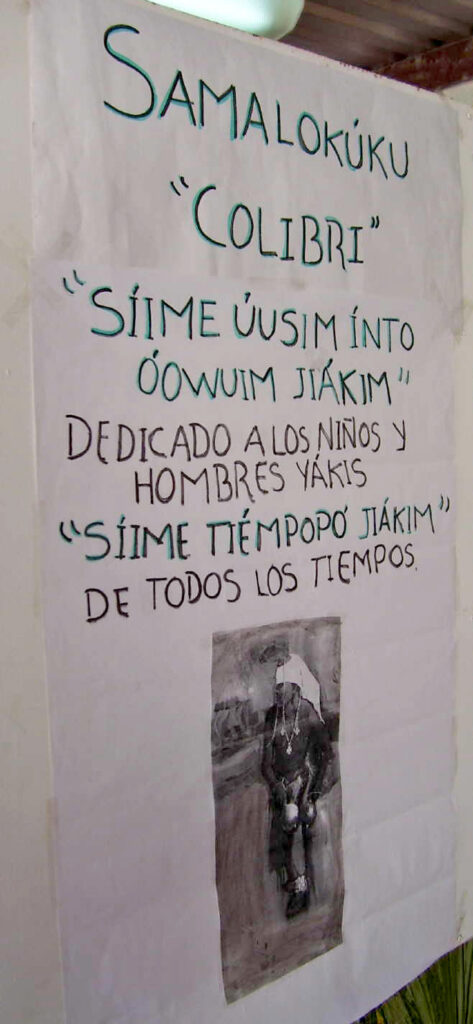 SAMALOKÚKU
"COLIBRI"
"SÍIME ÚUSIM ÍNTO
ÓOWUIM JIÁKIM"
DEDICADO A LOS NIÑOS Y
HOMBRES YÁKIS
"SÍIME TIÉMPOPÓ JIÁKIM"
DE TODOS LOS TIEMPOS.